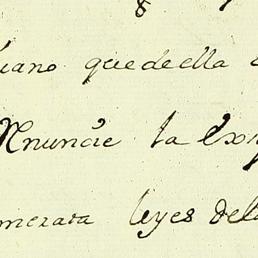 iano quedeella
Renuncie la Ex
merara leyes dela